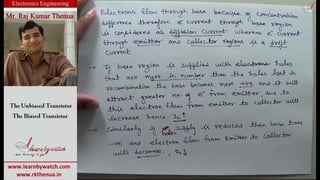 Electronics Engineering
Mr. Raj Kumar Thenua
The Unbiased Transistor
The Biased Transistor
Learnbywatch
.com
www.learnbywatch.com
www.rkthenua.in
Electrons flow through base because of concentration
difference therefore e⁻ current through base region
is considered as diffusion current whereas e⁻ current
through emitter and collector regions is a drift
current
→ If base region is supplied with electrons holes
that are more in number than the holes lost in
recombination the base becomes more +ve and it will
attract greater no. of e⁻ from emitter, due to
this electron flow from emitter to collector will
increase hence I₂↑
→ Similarly if holes supply is reduced then base turn
-ve and electron flow from emitter to collector
will decrease, I₂↓